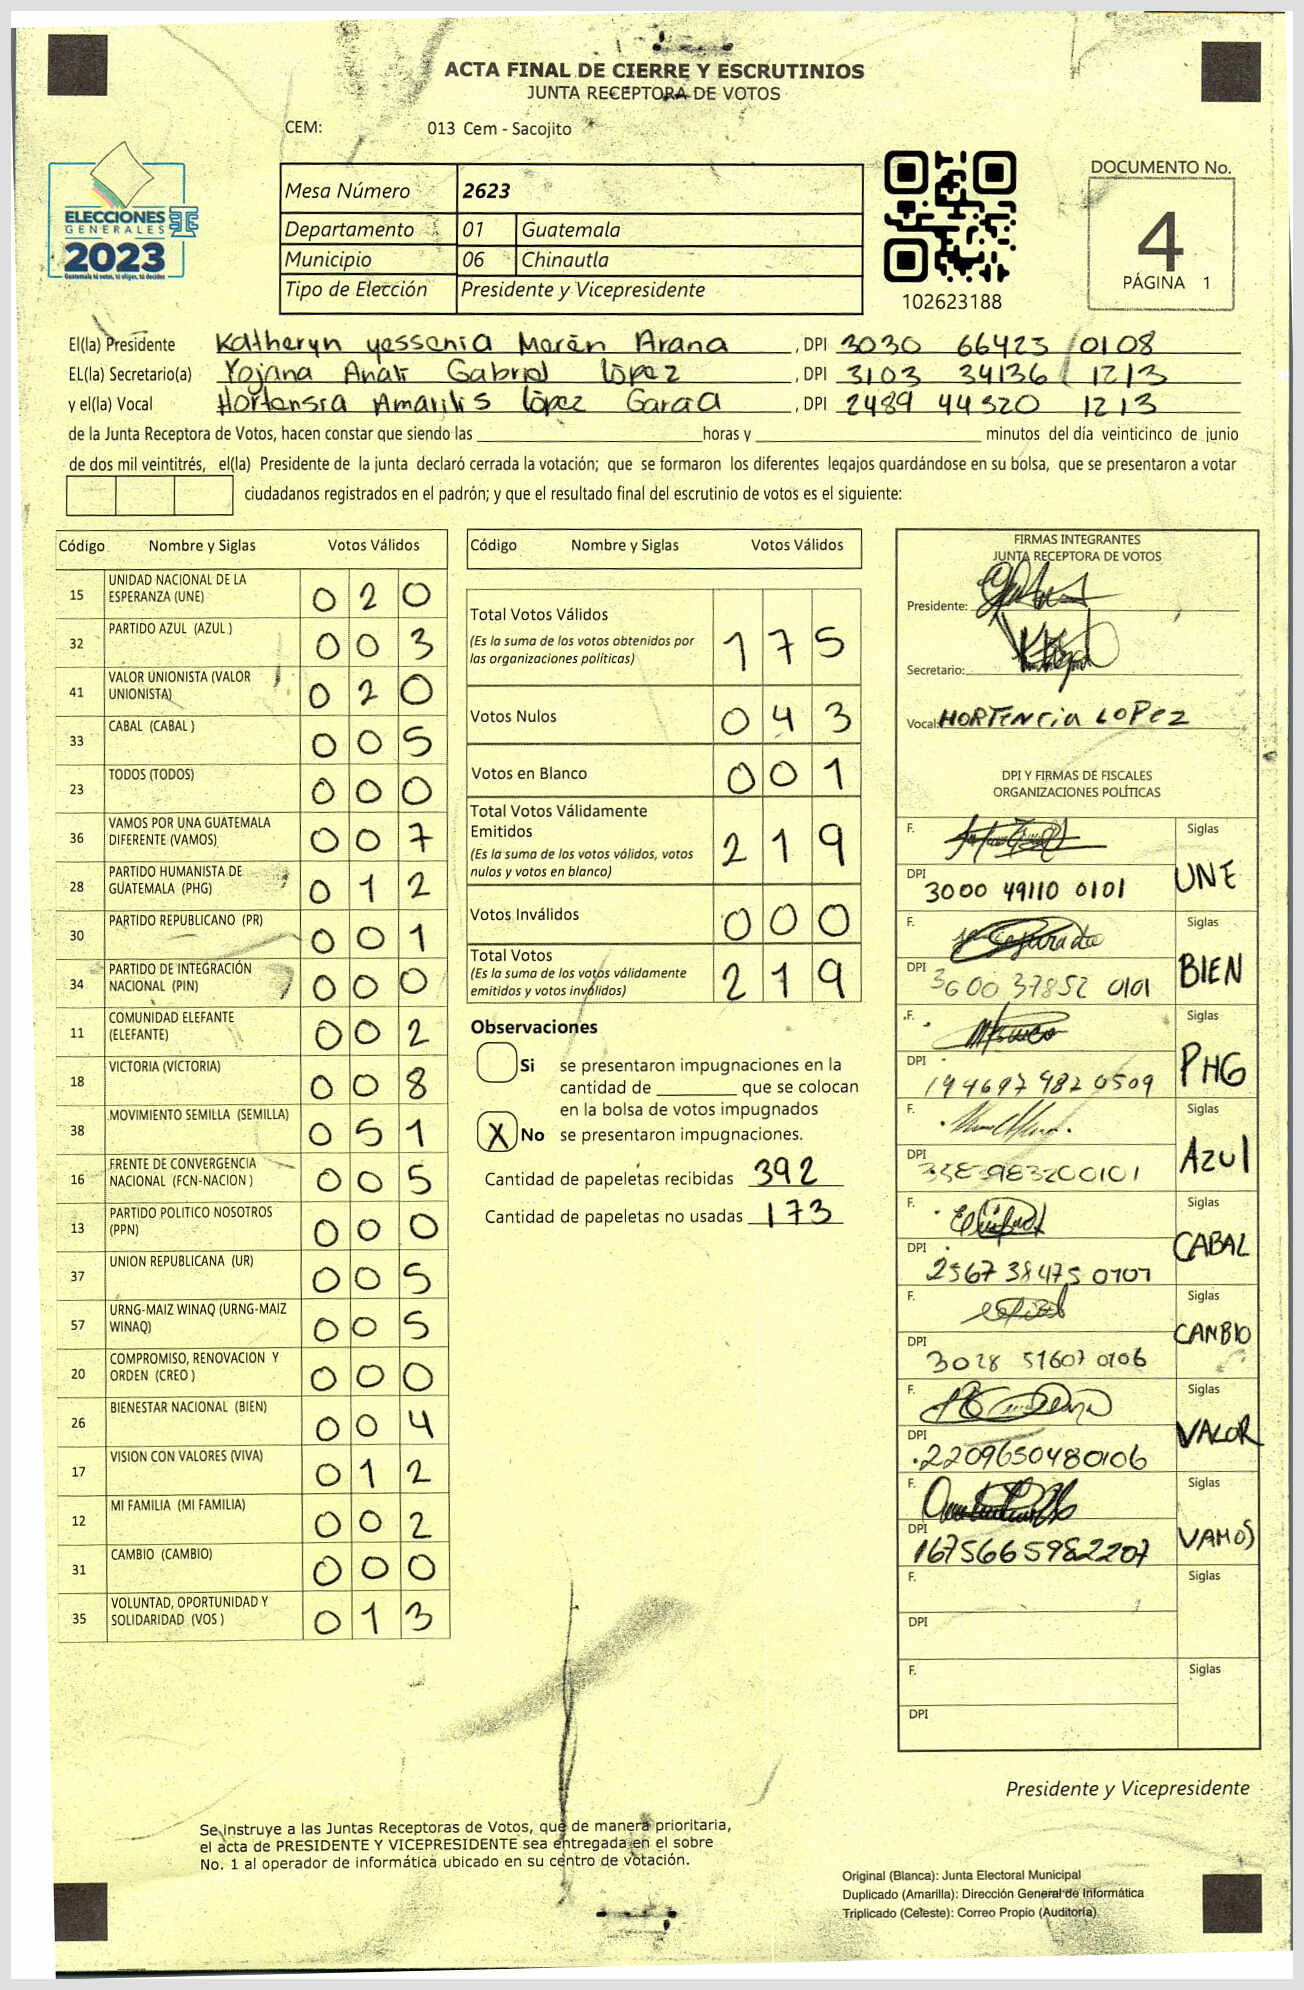 ACTA FINAL DE CIERRE Y ESCRUTINIOS
JUNTA RECEPTORA DE VOTOS
CEM: 013 Cem - Sacojito
ELECCIONES
GENERALES
2023
Guatemala tú votas, tú eliges, tú decides
Mesa Número 2623
Departamento 01 Guatemala
Municipio 06 Chinautla
Tipo de Elección Presidente y Vicepresidente
102623188
DOCUMENTO No.
4
PÁGINA 1
El(la) Presidente Katheryn yessenia Morán Arana , DPI 3030 66423 0108
EL(la) Secretario(a) Yojana Anali Gabriel López , DPI 3103 34136 1213
y el(la) Vocal Hortensia Amarilis López Garcia , DPI 2489 44520 1213
de la Junta Receptora de Votos, hacen constar que siendo las horas y minutos del día veinticinco de junio
de dos mil veintitrés, el(la) Presidente de la junta declaró cerrada la votación; que se formaron los diferentes legajos guardándose en su bolsa, que se presentaron a votar
ciudadanos registrados en el padrón; y que el resultado final del escrutinio de votos es el siguiente:
Código Nombre y Siglas Votos Válidos
15 UNIDAD NACIONAL DE LA ESPERANZA (UNE) 0 2 0
32 PARTIDO AZUL (AZUL ) 0 0 3
41 VALOR UNIONISTA (VALOR UNIONISTA) 0 2 0
33 CABAL (CABAL ) 0 0 5
23 TODOS (TODOS) 0 0 0
36 VAMOS POR UNA GUATEMALA DIFERENTE (VAMOS) 0 0 7
28 PARTIDO HUMANISTA DE GUATEMALA (PHG) 0 1 2
30 PARTIDO REPUBLICANO (PR) 0 0 1
34 PARTIDO DE INTEGRACIÓN NACIONAL (PIN) 0 0 0
11 COMUNIDAD ELEFANTE (ELEFANTE) 0 0 2
18 VICTORIA (VICTORIA) 0 0 8
38 MOVIMIENTO SEMILLA (SEMILLA) 0 5 1
16 FRENTE DE CONVERGENCIA NACIONAL (FCN-NACION ) 0 0 5
13 PARTIDO POLITICO NOSOTROS (PPN) 0 0 0
37 UNION REPUBLICANA (UR) 0 0 5
57 URNG-MAIZ WINAQ (URNG-MAIZ WINAQ) 0 0 5
20 COMPROMISO, RENOVACION Y ORDEN (CREO ) 0 0 0
26 BIENESTAR NACIONAL (BIEN) 0 0 4
17 VISION CON VALORES (VIVA) 0 1 2
12 MI FAMILIA (MI FAMILIA) 0 0 2
31 CAMBIO (CAMBIO) 0 0 0
35 VOLUNTAD, OPORTUNIDAD Y SOLIDARIDAD (VOS ) 0 1 3
Código Nombre y Siglas Votos Válidos
Total Votos Válidos 1 7 5
(Es la suma de los votos obtenidos por
las organizaciones políticas)
Votos Nulos 0 4 3
Votos en Blanco 0 0 1
Total Votos Válidamente
Emitidos 2 1 9
(Es la suma de los votos válidos, votos
nulos y votos en blanco)
Votos Inválidos 0 0 0
Total Votos 2 1 9
(Es la suma de los votos válidamente
emitidos y votos inválidos)
Observaciones
Si se presentaron impugnaciones en la
cantidad de que se colocan
en la bolsa de votos impugnados
X No se presentaron impugnaciones.
Cantidad de papeletas recibidas 392
Cantidad de papeletas no usadas 173
FIRMAS INTEGRANTES
JUNTA RECEPTORA DE VOTOS
Presidente:
Secretario:
Vocal: HORTENcia LOPez
DPI Y FIRMAS DE FISCALES
ORGANIZACIONES POLÍTICAS
F. Siglas
DPI 3000 49110 0101 UNE
F. Siglas
DPI 3600 37852 0101 BIEN
F. Siglas
DPI 194697482 0509 PHG
F. Siglas
DPI AZUl
F. Siglas
DPI 2567 38475 0101 CABAL
F. Siglas
DPI 3028 51607 0106 CANBIO
F. Siglas
DPI 2209650480106 VALOR
F. Siglas
DPI 1675665982207 VAMOS
F. Siglas
DPI
F. Siglas
DPI
Presidente y Vicepresidente
Se instruye a las Juntas Receptoras de Votos, que de manera prioritaria,
el acta de PRESIDENTE Y VICEPRESIDENTE sea entregada en el sobre
No. 1 al operador de informática ubicado en su centro de votación.
Original (Blanca): Junta Electoral Municipal
Duplicado (Amarilla): Dirección General de Informática
Triplicado (Celeste): Correo Propio (Auditoría)